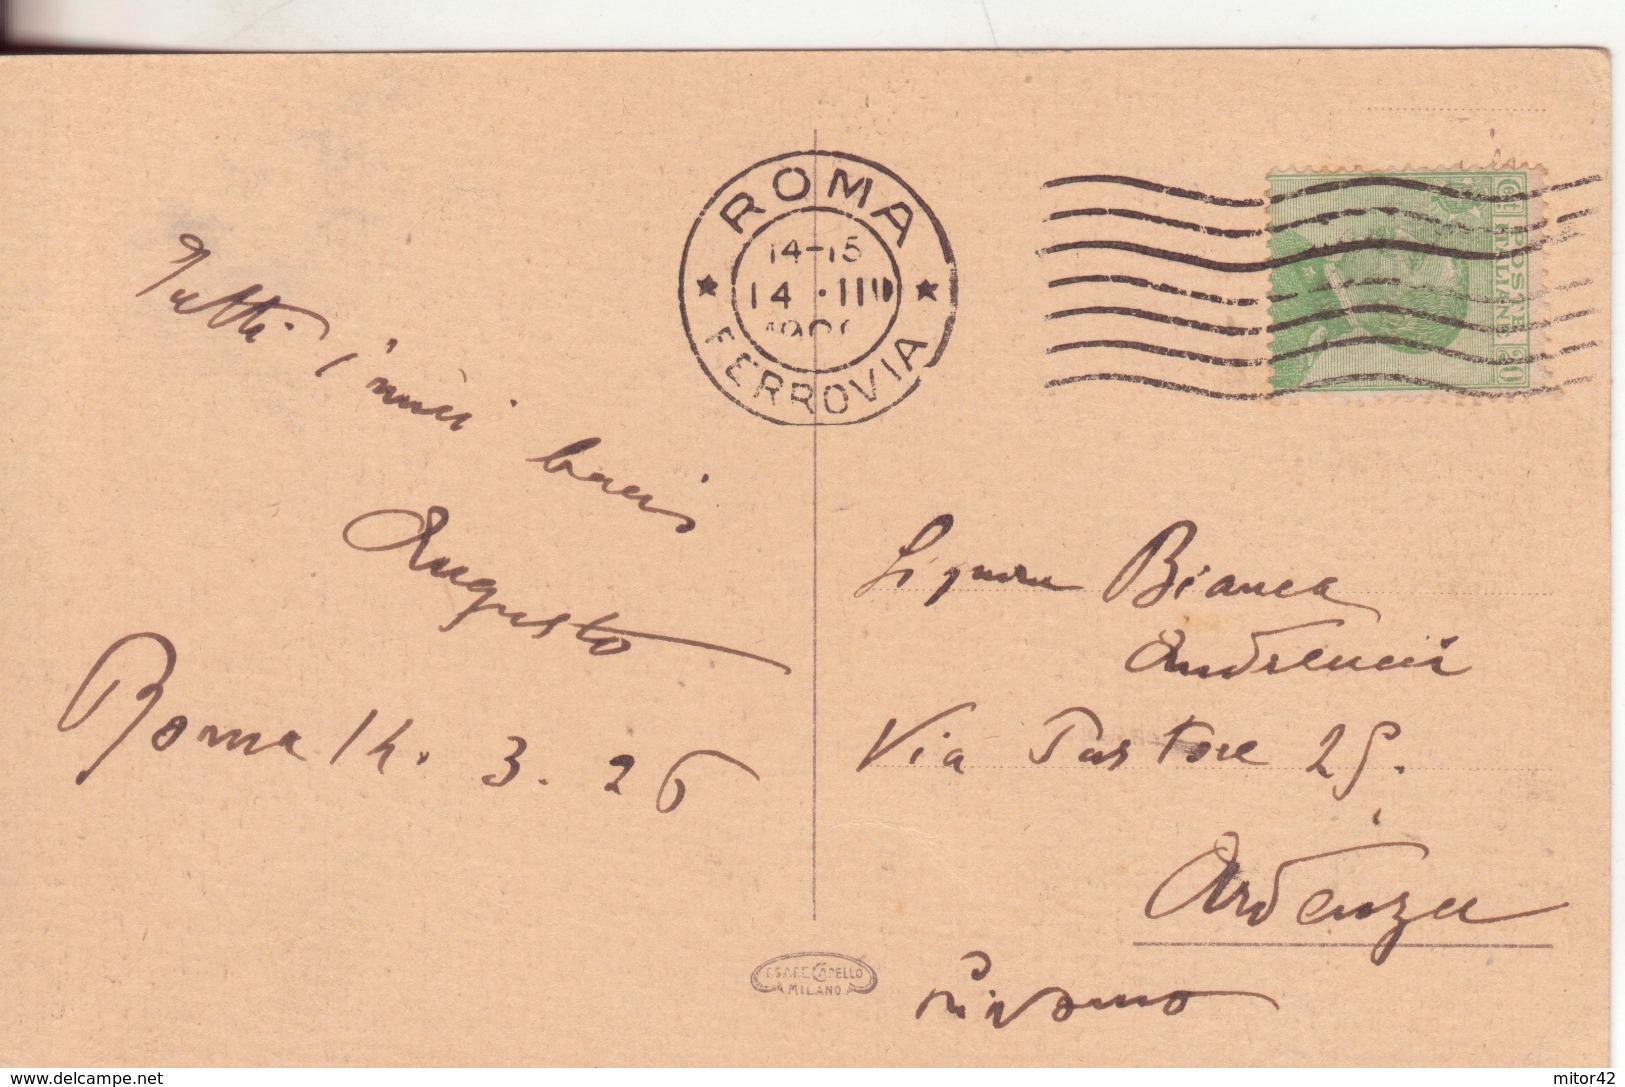 ROMA
14-15
14 · III
FERROVIA
POSTE
ITALIANE
Cent. 20
Tutti i miei baci
Augusto
Roma 14. 3. 26
Signora Bianca
Via Pastore 25.
Ardenza
Livorno
CESARE CAPELLO
MILANO
www.delcampe.net
mitor42